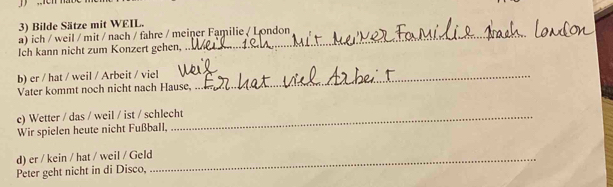 3) Bilde Sätze mit WEIL.
a) ich / weil / mit / nach / fahre / meiner Familie / London
Ich kann nicht zum Konzert gehen, ..Weil ich Mit MeiNer FaMilie Nach London
b) er / hat / weil / Arbeit / viel
weil
Vater kommt noch nicht nach Hause, ...Er hat viel Arbeit
c) Wetter / das / weil / ist / schlecht
Wir spielen heute nicht Fußball, ...
d) er / kein / hat / weil / Geld
Peter geht nicht in di Disco, ...